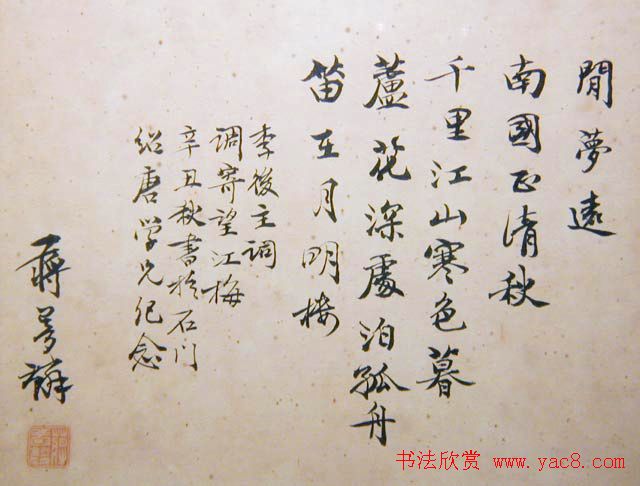 閒夢遠
南國正清秋
千里江山寒色暮
蘆花深處泊孤舟
笛在月明楼
李後主調
調寄望江梅
辛丑秋書於石门
紹唐学兄纪念
蔣夢麟
书法欣赏 www.yac8.com